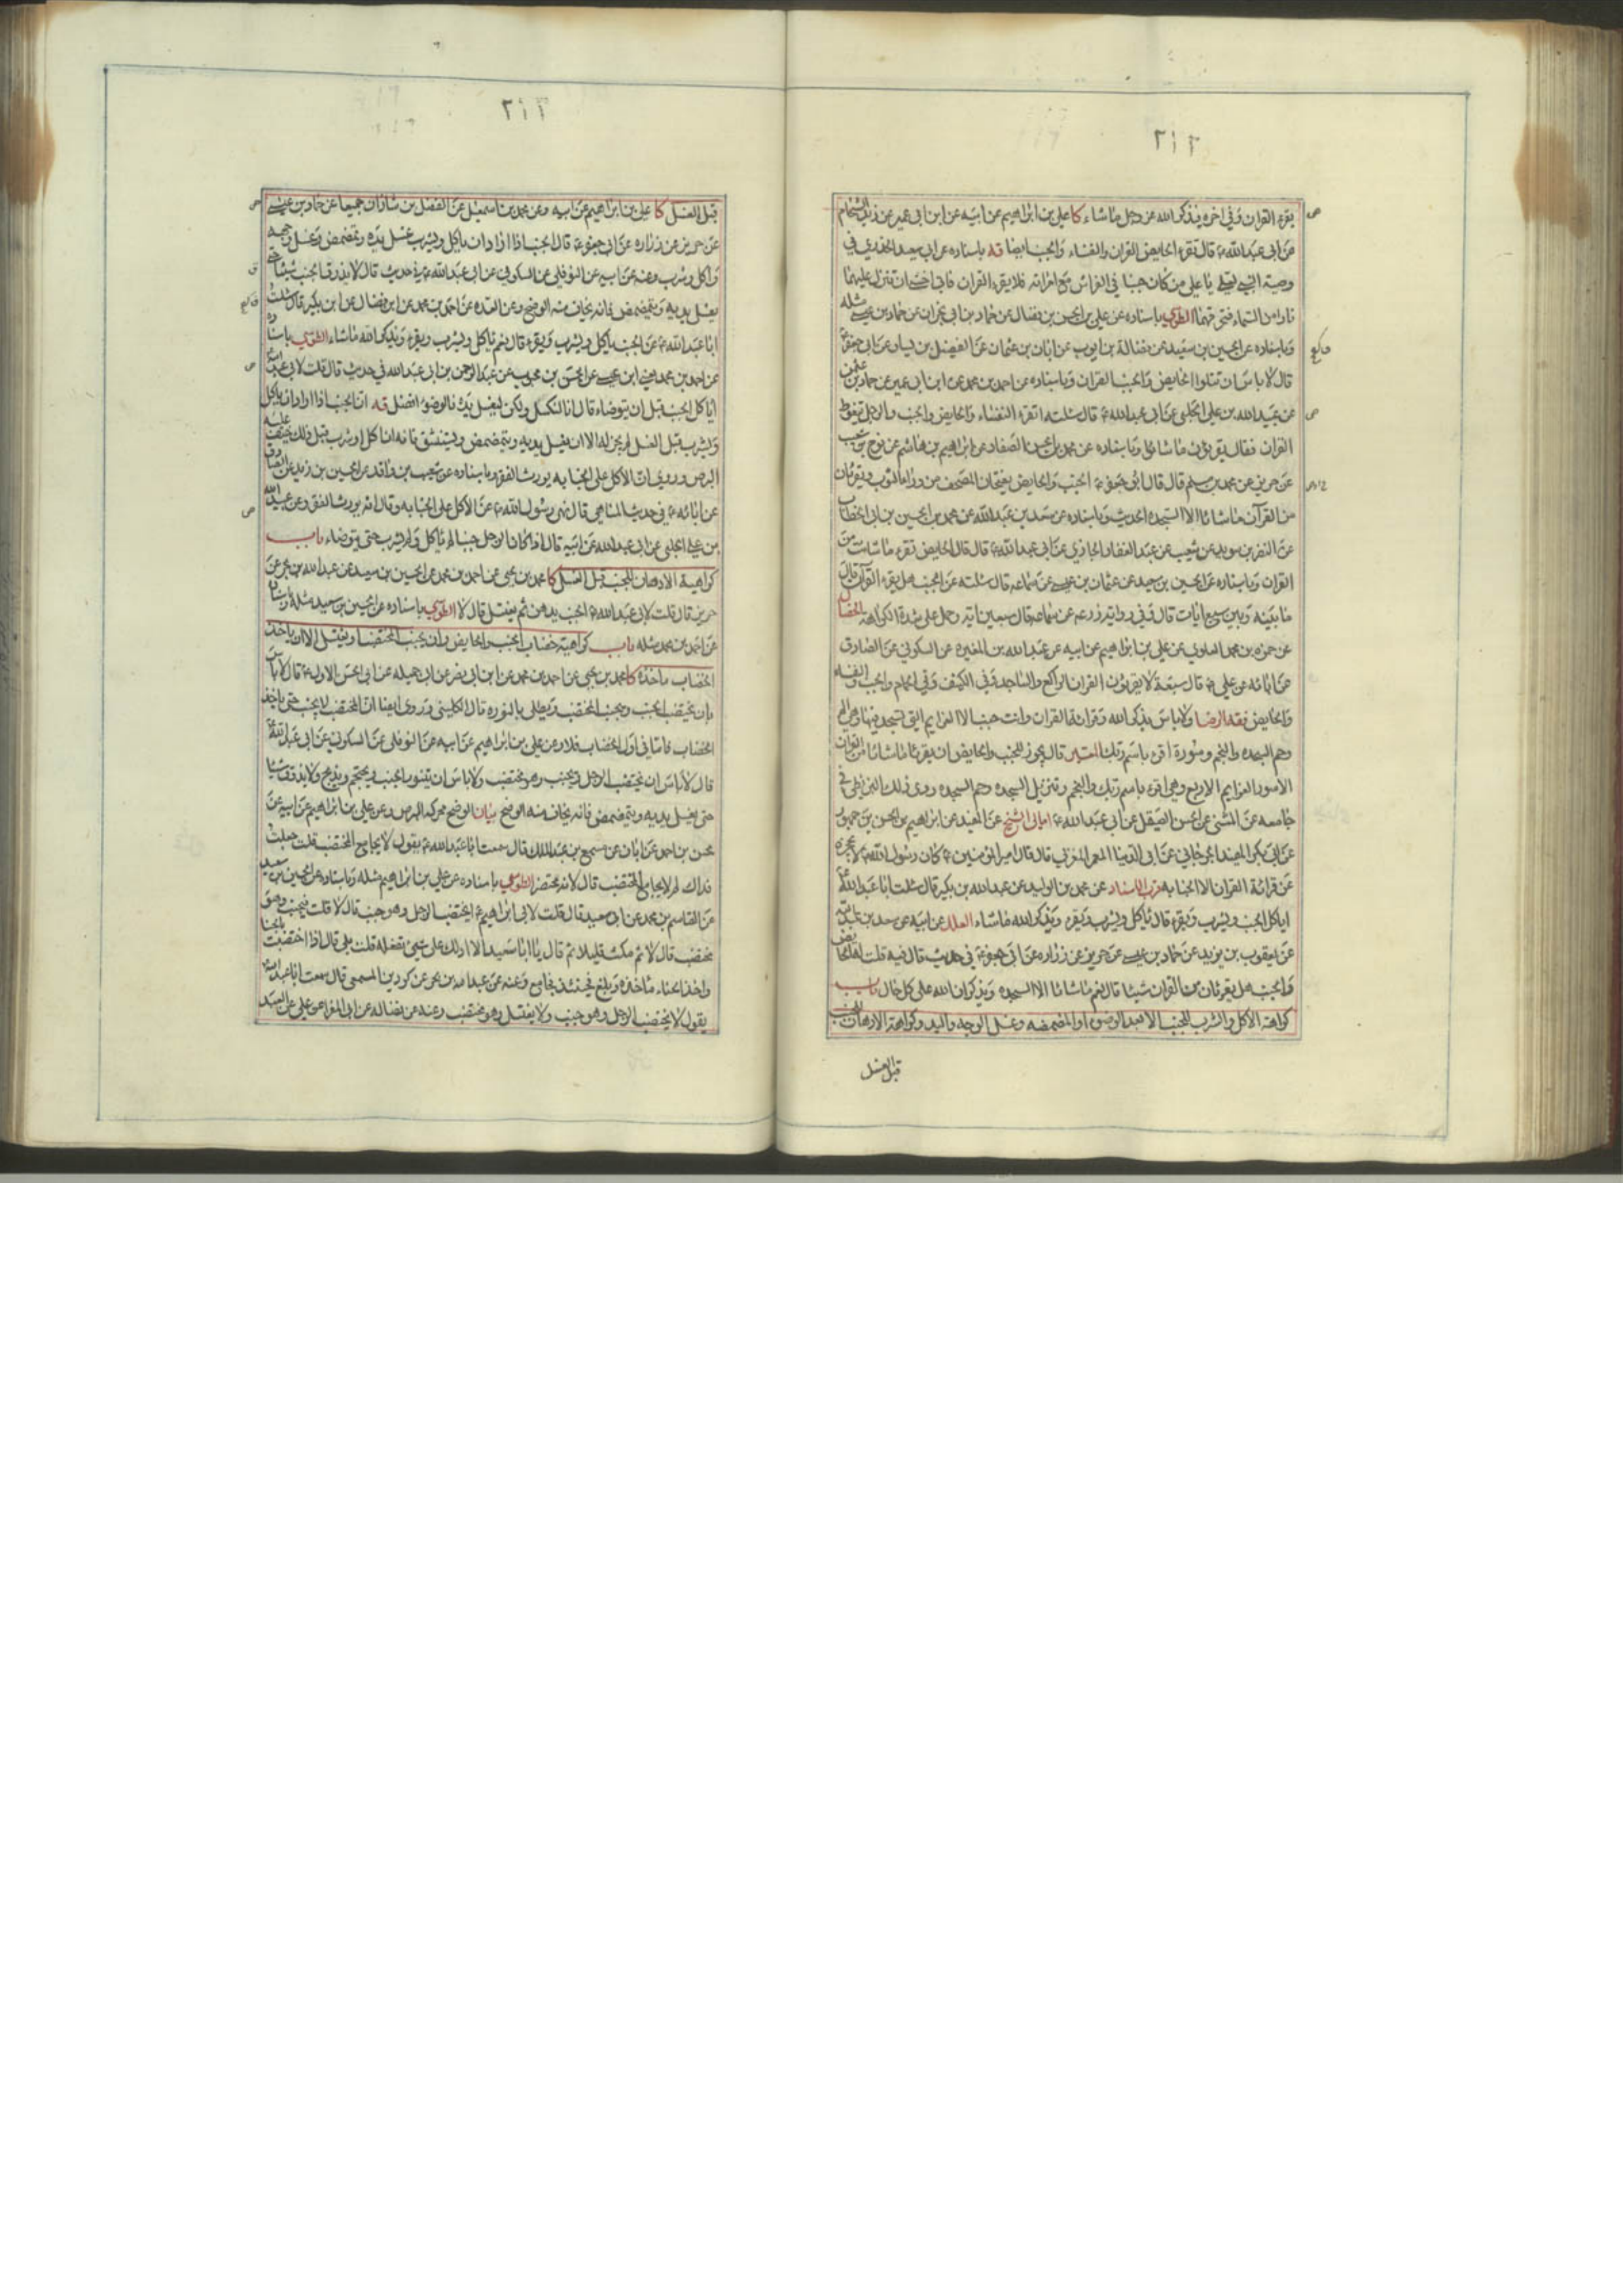 ٢١٢
يقرء القران وفي اخره يذكر الله عز وجل ما شاء كا علي بن ابراهيم عن ابيه عن ابن ابي عمير عن زيد الشحام
عن ابي عبد الله ع قال تقرء الحايض القران والنفساء والجنب ايضا قه باسناده عن ابي سعيد الخدري في
وصية النبي لعلي يا علي من كان جنبا في الفراش مع امراته فلا يقرء القران فاني اخشى ان تنزل عليهما
نار من السماء فتحرقهما الطوسي باسناده عن علي بن الحسن بن فضال عن حماد عن حماد بن عيسى مثله
وباسناده عن الحسين بن سعيد عن فضالة بن ايوب عن ابان بن عثمان عن الفضيل بن يسار عن ابي جعفر ع
قال لا باس ان تتلوا الحايض والجنب القران وباسناده عن احمد بن محمد عن ابن ابي عمير عن حماد بن عثمن
عن عبيد الله بن علي الحلبي عن ابي عبد الله ع قال سئلته اتقرء النفساء والحايض والجنب والرجل يتغوط
القران فقال يقرؤن ما شاؤا وباسناده عن محمد بن الحسن الصفار عن ابراهيم بن هاشم عن نوح بن شعيب
عن حريز عن محمد بن مسلم قال قال ابو جعفر ع الجنب والحايض يفتحان المصحف من وراء الثوب ويقرئان
من القرآن ما شائا الا السجده الحديث وباسناده عن سعد بن عبد الله عن محمد بن الحسين بن ابي الخطاب
عن النضر بن سويد عن شعيب عن عبد الغفار الجازي عن ابي عبد الله ع قال قال الحايض تقرء ما شاءت من
القران وباسناده عن الحسين بن سعيد عن عثمان بن عيسى عن سماعه قال سئلته عن الجنب هل يقرء القرآن قال
ما بينه وبين سبع ايات قال وفي رواية زرعه عن سماعه قال سبعين آيه وحمل على شدة الكراهة الخصال
عن حمزه بن محمد العلوي عن علي بن ابراهيم عن ابيه عن عبد الله بن المغيره عن السكوني عن الصادق
عن ابائه عن علي ع قال سبعة لا يقرئون القران الراكع والساجد وفي الكنيف وفي الحمام والجنب والنفساء
والحايض فقه الرضا ولا باس بذكر الله وقرائة القران وانت جنب الا العزايم التي تسجد فيها وهي الم
وحم السجده والنجم وسورة اقرء باسم ربك المعتبر قال يجوز للجنب والحايض ان يقرئا ما شائا من القران
الا سور العزايم الاربع وهي اقرء باسم ربك والنجم وتنزيل السجده وحم السجده روى ذلك البزنطي في
جامعه عن المثنى عن الحسن الصيقل عن ابي عبد الله ع امالي الشيخ عن المفيد عن ابراهيم بن الحسن بن جمهور
عن ابي بكر المفيد الجرجاني عن ابي الدنيا المعمر المغربي قال قال امير المؤمنين ع كان رسول الله ص لا يحجزه
عن قرائة القران الا الجنابه قرب الاسناد عن محمد بن الوليد عن عبد الله بن بكير قال سئلت ابا عبد الله ع
اياكل الجنب ويشرب ويقرء قال ياكل ويشرب ويقرء ويذكر الله ما شاء العلل عن ابيه عن سعد بن عبد الله
عن يعقوب بن يزيد عن حماد بن عيسى عن حريز عن زراره عن ابي جعفر ع في حديث قال فيه قلت له الحايض
والجنب هل يقرئان من القران شيئا قال نعم ما شائا الا السجده ويذكران الله على كل حال باب
كراهة الاكل والشرب للجنب الا بعد الوضوء او المضمضه وغسل الوجه واليد وكراهة الادهان للجنب
قبل الغسل
٢١٣
قبل الغسل كا علي بن ابراهيم عن ابيه وعن محمد بن اسمعيل عن الفضل بن شاذان جميعا عن حماد بن عيسى
عن حريز عن زراره عن ابي جعفر ع قال الجنب اذا اراد ان ياكل ويشرب غسل يده وتمضمض وغسل وجهه
واكل وشرب وعنه عن ابيه عن النوفلي عن السكوني عن ابي عبد الله ع في حديث قال لا يذوق الجنب شيئا حتى
يغسل يديه ويتمضمض فانه يخاف منه الوضح وعن العده عن احمد بن محمد عن ابن فضال عن ابن بكير قال سئلت
ابا عبد الله ع عن الجنب ياكل ويشرب ويقرء قال نعم ياكل ويشرب ويقرء ويذكر الله ما شاء الطوسي باسناده
عن احمد بن محمد يعني ابن عيسى عن الحسن بن محبوب عن عبد الرحمن بن ابي عبد الله في حديث قال قلت لابي عبد الله
اياكل الجنب قبل ان يتوضاء قال انا لنكسل ولكن ليغسل يده فالوضوء افضل قه ان الجنب اذا اراد ان ياكل
ويشرب قبل الغسل لم يجز له الا ان يغسل يديه ويتمضمض ويستنشق فانه ان اكل او شرب قبل ذلك خيف عليه
البرص وروي ان الاكل على الجنابه يورث الفقر وباسناده عن شعيب بن واقد عن الحسين بن زيد عن الصادق
عن ابائه ع في حديث المناهي قال نهى رسول الله ص عن الاكل على الجنابه وقال انه يورث الفقر وعن عبيد الله
بن علي الحلبي عن ابي عبد الله عن ابيه قال اذا كان الرجل جنبا لم ياكل ولم يشرب حتى يتوضاء باب
كراهية الادهان للجنب قبل الغسل كا محمد بن يحيى عن احمد بن محمد عن الحسين بن سعيد عن عبد الله بن بحر عن
حريز قال قلت لابي عبد الله ع الجنب يدهن ثم يغتسل قال لا الطوسي باسناده عن الحسين بن سعيد مثله
عن احمد بن محمد مثله باب كراهية خضاب الجنب والحايض وان يجنب المختضب ويغتسل الا ان ياخذ
الخضاب ماخذه كا محمد بن يحيى عن احمد بن محمد عن ابن ابي نصر عن ابي جميله عن ابي الحسن الاول ع قال لا باس
بان يختضب الجنب ويجنب المختضب ويطلى بالنوره قال الكليني وروى ايضا ان المختضب لا يجنب حتى ياخذ
الخضاب فاما في اول الخضاب فلا وعن علي بن ابراهيم عن ابيه عن النوفلي عن السكوني عن ابي عبد الله ع
قال لا باس ان يختضب الرجل ويجنب وهو مختضب ولا باس ان يتنور الجنب ويحتجم ويذبح ولا يذوق شيئا
حتى يغسل يديه ويتمضمض فانه يخاف منه الوضح بيان الوضح محركه البرص وعن علي بن ابراهيم عن ابيه عن
محسن بن احمد عن ابان عن مسمع بن عبد الملك قال سمعت ابا عبد الله ع يقول لا يجامع المختضب قلت جعلت
فداك لم لا يجامع المختضب قال لانه محتضر الطوسي باسناده عن علي بن ابراهيم مثله وباسناده عن الحسين بن سعيد
عن القاسم بن محمد عن ابي سعيد قال قلت لابي ابراهيم ع ايختضب الرجل وهو جنب قال لا قلت فيجنب وهو
مختضب قال لا ثم مكث قليلا ثم قال يا ابا سعيد الا ادلك على شيء تفعله قلت بلى قال اذا اختضبت بالحنا
واخذ الحناء ماخذه وبلغ فحينئذ فجامع وعنه عن عبد الله بن بحر عن كردين المسمعي قال سمعت ابا عبد الله ع
يقول لا يختضب الرجل وهو جنب ولا يغتسل وهو مختضب وعنه عن فضاله عن ابي المغرا عن علي عن العبد